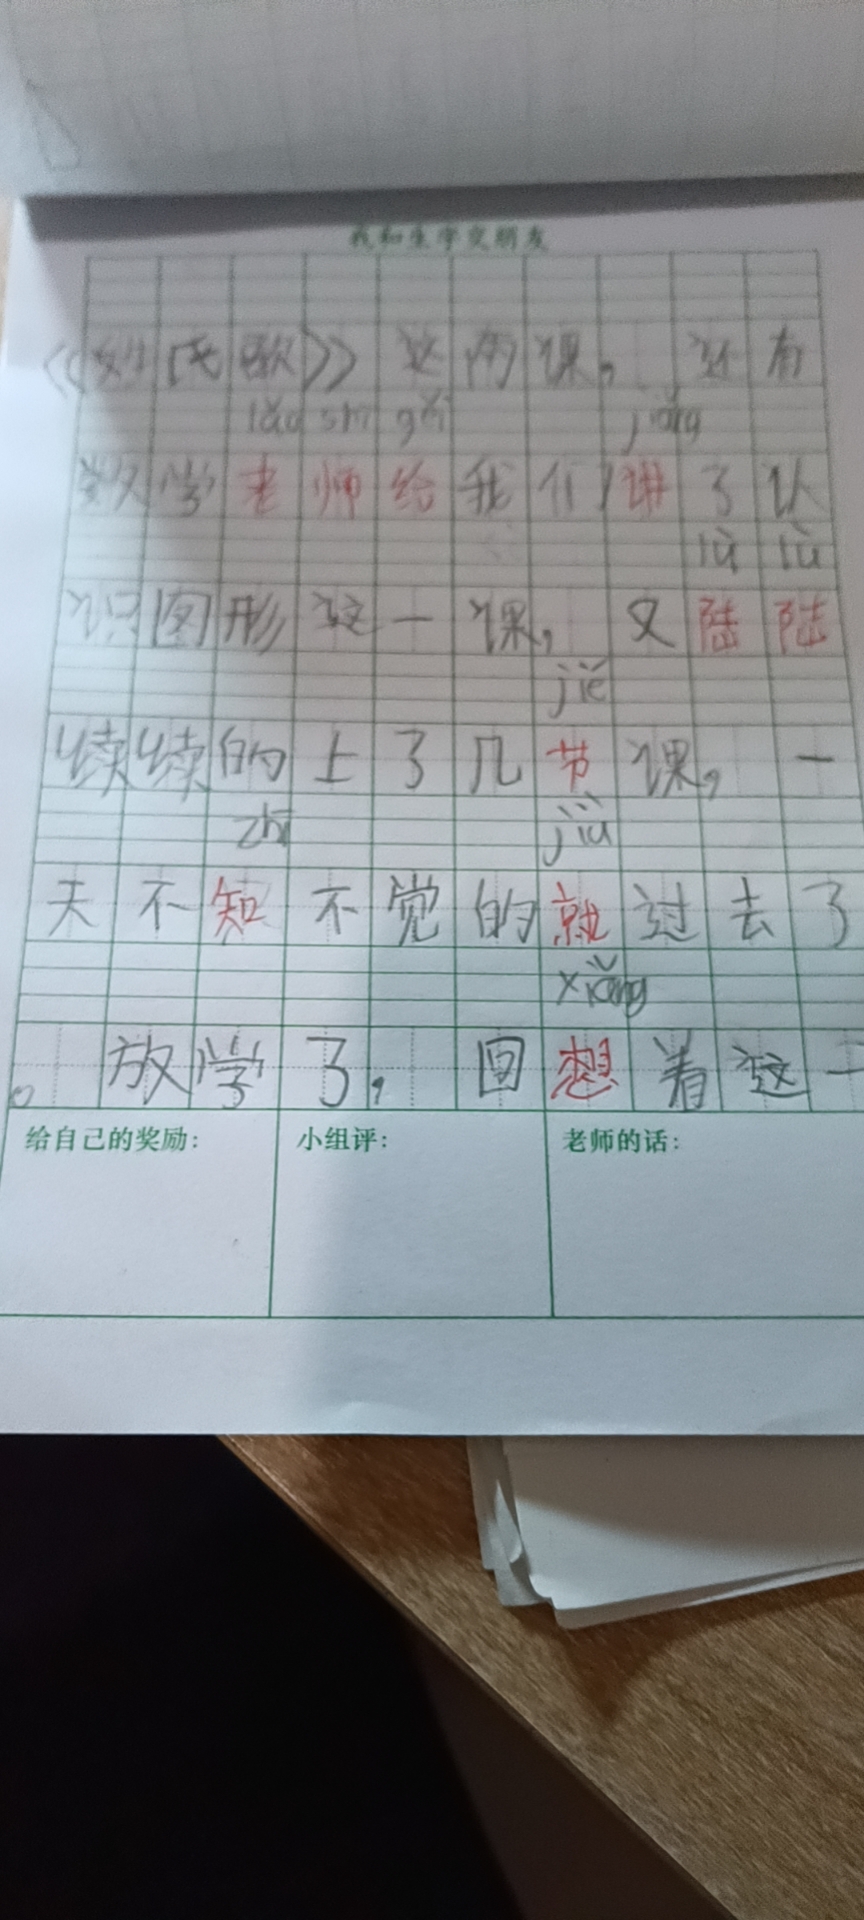 我和生字交朋友
《姓氏歌》这两课，还有
lǎo shī gěi jiǎng
数学老师给我们讲了认
lù lù
识图形这一课，又陆陆
jié
续续的上了几节课，一
zhī jiù
天不知不觉的就过去了
xiǎng
。放学了，回想着这一
给自己的奖励： 小组评： 老师的话：